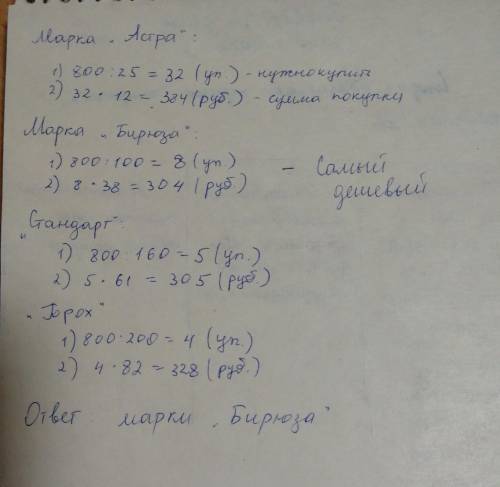 Марка "Астра":
1) 800:25 = 32 (уп.) - нужно купить
2) 32 · 12 = 384 (руб.) - сумма покупки
Марка "Бирюза":
1) 800:100 = 8 (уп.)
2) 8 · 38 = 304 (руб.)
- Самый
дешевый
"Стандарт":
1) 800:160 = 5 (уп.)
2) 5 · 61 = 305 (руб.)
"Горох"
1) 800:200 = 4 (уп.)
2) 4 · 82 = 328 (руб.)
Ответ: марки "Бирюза"